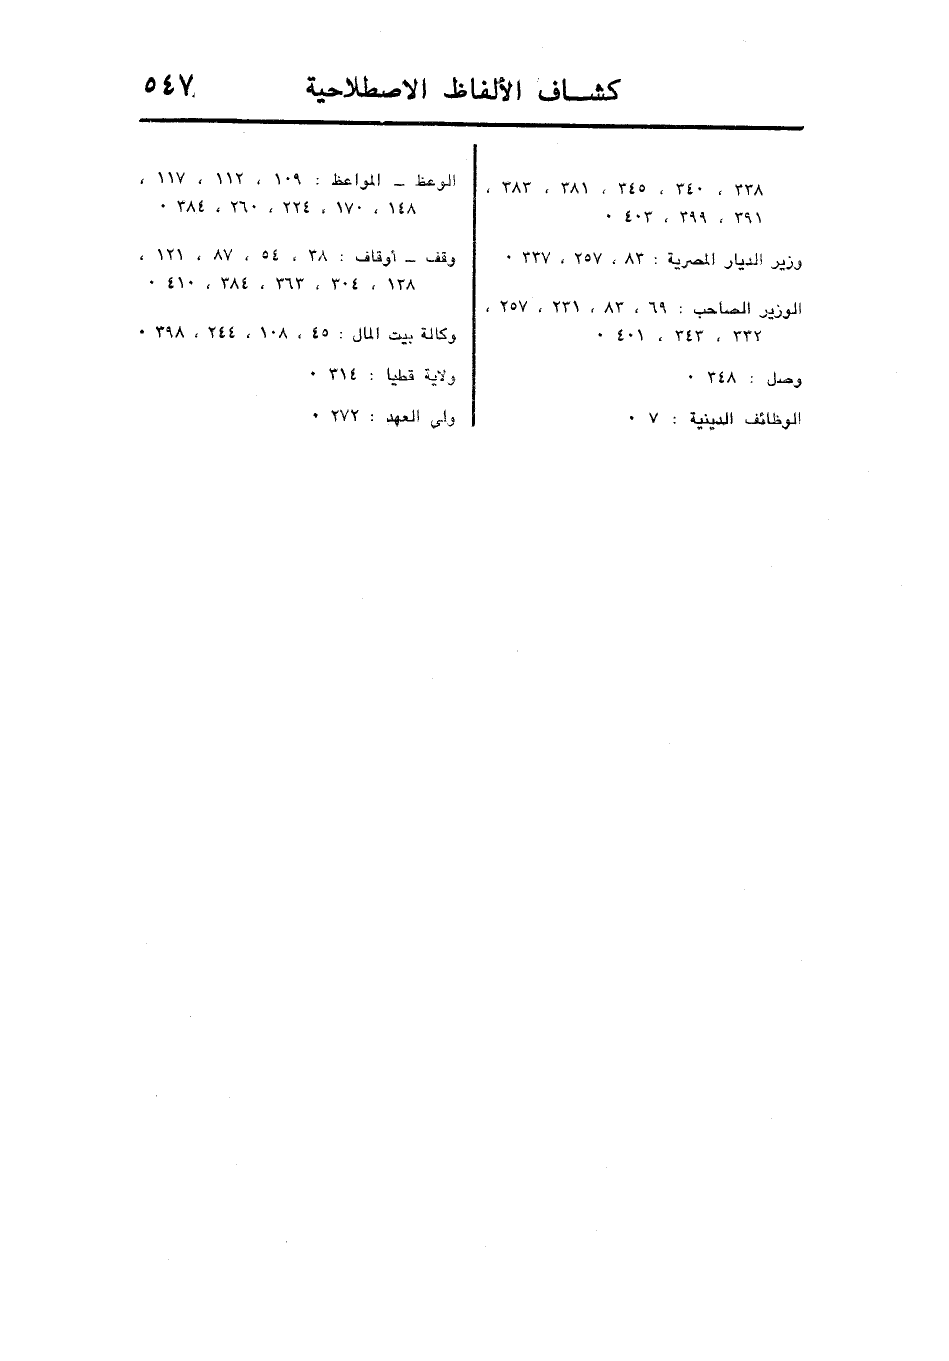 كشاف الألفاظ الاصطلاحية ٥٤٧
٣٣٨ ، ٣٤٠ ، ٣٤٥ ، ٣٨١ ، ٣٨٣ ،
٣٩١ ، ٣٩٩ ، ٤٠٣ ٠
وزير الديار المصرية : ٨٣ ، ٢٥٧ ، ٣٣٧ ٠
الوزير الصاحب : ٦٩ ، ٨٣ ، ٢٣١ ، ٢٥٧ ،
٣٣٢ ، ٣٤٣ ، ٤٠١ ٠
وصل : ٣٤٨ ٠
الوظائف الدينية : ٧ ٠
الوعظ ـ المواعظ : ١٠٩ ، ١١٢ ، ١١٧ ،
١٤٨ ، ١٧٠ ، ٢٢٤ ، ٢٦٠ ، ٣٨٤ ٠
وقف ـ أوقاف : ٣٨ ، ٥٤ ، ٨٧ ، ١٢١ ،
١٣٨ ، ٣٠٤ ، ٣٦٣ ، ٣٨٤ ، ٤١٠ ٠
وكالة بيت المال : ٤٥ ، ١٠٨ ، ٢٤٤ ، ٣٩٨ ٠
ولاية قطيا : ٣١٤ ٠
ولى العهد : ٢٧٢ ٠